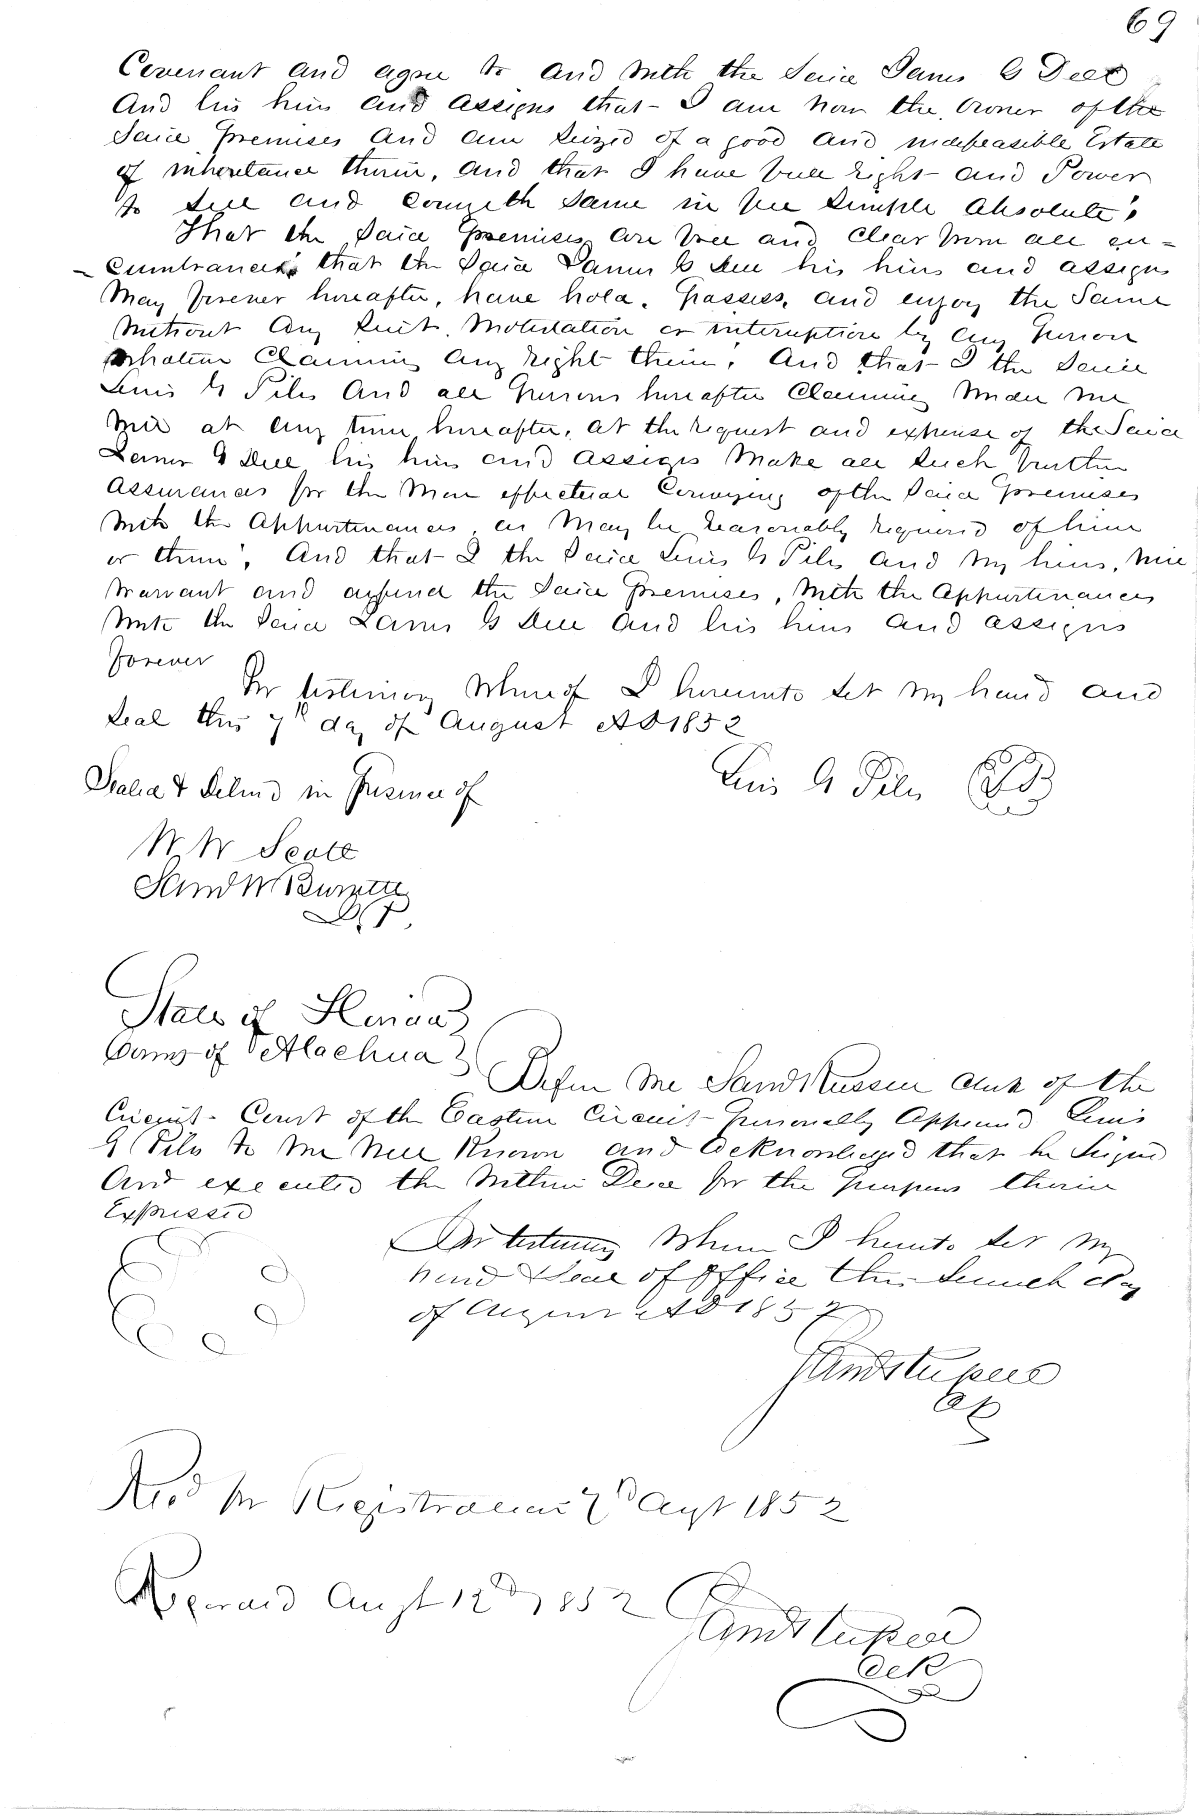 69
Covenant and agree to and with the said James G Dell
and his heirs and assigns that I am now the owner of the
Said Premises and am Seized of a good and indefeasible Estate
of inheritance therein, and that I have full right and Power
to sell and convey the same in fee simple absolute;
That the Said Premises are free and clear from all en=
-cumbrances; that the Said James G Dell his heirs and assigns
May forever hereafter, have hold, Possess, and enjoy the Same
without any Suit, Molestation or interuption by any Person
whatever Claiming any right therein; And that I the Said
Lewis G Piles and all Persons hereafter Claiming Under me
will at any time hereafter, at the request and expense of the Said
James G Dell his heirs and assigns Make all Such further
assurances for the More effectual Conveying of the Said Premises
with the Appurtenances, as May be reasonably required of him
or them; And that I the Said Lewis G Piles and My heirs, will
warrant and defend the Said Premises, with the Appurtenances
unto the Said James G Dell and his heirs and assigns
forever
In testimony Whereof I hereunto set my hand and
Seal this 7th day of August AD 1852
Sealed & Delivd in Presence of
Lewis G Piles
W W Scott
Saml W Burnette
State of Florida
County of Alachua
Before Me Saml Russell Clerk of the
Circuit Court of the Eastern Circuit Personally Appeared Lewis
G Piles to me well Known and acknowledged that he Signed
And executed the within Deed for the Purposes therein
Expressed
In testimony Whereof I hereunto Set My
hand & Seal of Office this Seventh day
of August AD 1852
Clk
Recd for Registration 7th Augt 1852
Recorded Augt 12th 1852
Clk